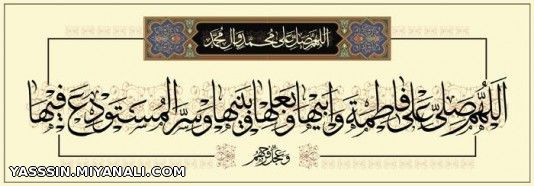 اللهم صل علی محمد وآل محمد
اَللّهُمَّ صَلِّ عَلی فاطِمَةَ وَ اَبیها وَ بَعلِها وَ بَنیها وَ سِرِّ المُستَودَعِ فیها
وعجل فرجهم
YASSSIN.MIYANALI.COM